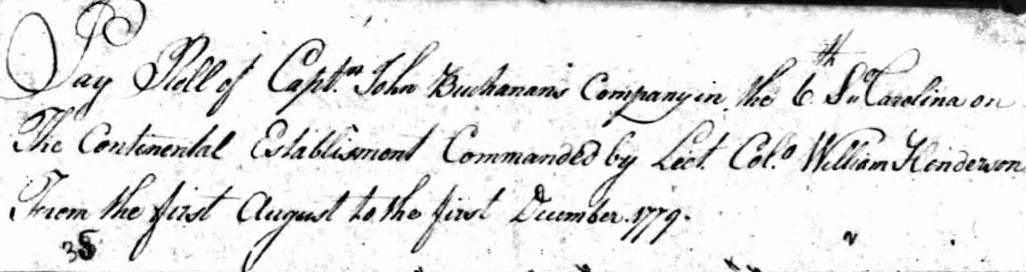 Pay Roll of Capt.n John Buchanans Company in the 6th So Carolina on
The Continental Establisment Commanded by Leet. Colo William Henderson
From the first August to the first December 1779.
35